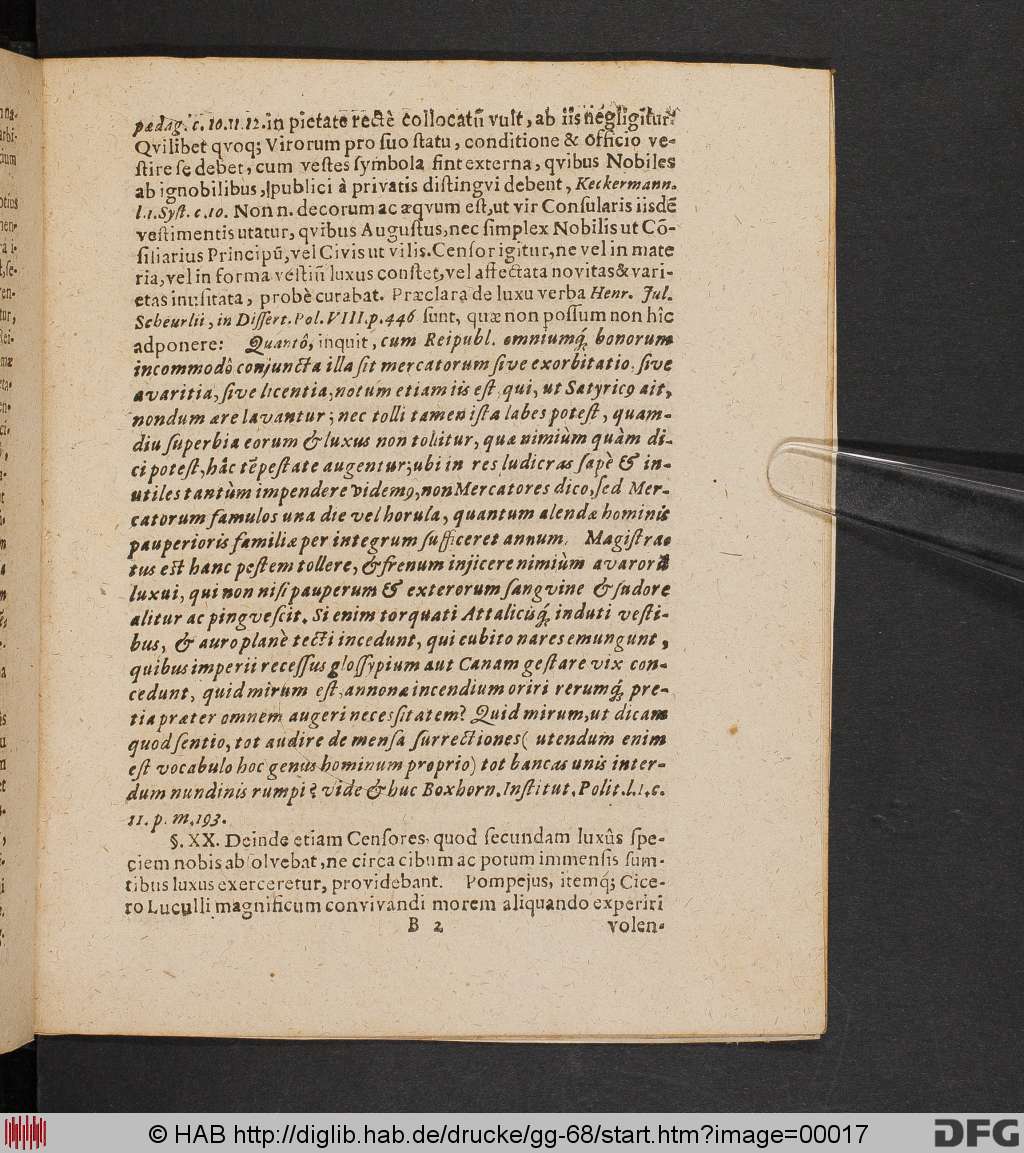 pædag. c. 10. 11. 12. in pietate rectè collocatũ vult, ab iis negligitur.
Qvilibet qvoq; Virorum pro ſuo ſtatu, conditione & officio ve-
ſtire ſe debet, cum veſtes ſymbola ſint externa, qvibus Nobiles
ab ignobilibus, publici à privatis diſtingvi debent, Keckermann.
l. 1. Syſt. c. 10. Non n. decorum ac æqvum eſt, ut vir Conſularis iisdẽ
veſtimentis utatur, qvibus Auguſtus, nec ſimplex Nobilis ut Cõ-
ſiliarius Principũ, vel Civis ut vilis. Cenſor igitur, ne vel in mate
ria, vel in forma veſtiũ luxus conſtet, vel affectata novitas & vari-
etas inuſitata, probè curabat. Præclara de luxu verba Henr. Jul.
Scheurlii, in Diſſert. Pol. VIII. p. 446 ſunt, quæ non poſſum non hîc
adponere: Quantô, inquit, cum Reipubl. omniumq́; bonorum
incommodô conjuncta illa ſit mercatorum ſive exorbitatio, ſive
avaritia, ſive licentia, notum etiam iis eſt, qui, ut Satyrico ait,
nondum ære lavantur; nec tolli tamen iſta labes poteſt, quam-
diu ſuperbia eorum & luxus non tollitur, quæ nimiùm quàm di-
ci poteſt, hâc tẽpeſtate augentur; ubi in res ludicras ſæpè & in-
utiles tantùm impendere videmꝰ, non Mercatores dico, ſed Mer-
catorum famulos una die vel horula, quantum alendæ hominis
pauperioris familiæ per integrum ſufficeret annum. Magiſtra-
tus eſt hanc peſtem tollere, & frenum injicere nimiùm avarorũ
luxui, qui non niſi pauperum & exterorum ſangvine & ſudore
alitur ac pingveſcit. Si enim torquati Attalicisq́; induti veſti-
bus, & auro planè tecti incedunt, qui cubito nares emungunt,
quibus imperii receſſus gloſſypium aut Canam geſtare vix con-
cedunt, quid mirum eſt, annonæ incendium oriri rerumq́; pre-
tia præter omnem augeri necesſitatem? Quid mirum, ut dicam
quod ſentio, tot audire de menſa ſurrectiones (utendum enim
eſt vocabulo hoc genus hominum proprio) tot bancas unis inter-
dum nundinis rumpi? vide & huc Boxhorn. Inſtitut. Polit. l. 1. c.
11. p. m. 193.
§. XX. Deinde etiam Cenſores, quod ſecundam luxûs ſpe-
ciem nobis abſolvebat, ne circa cibum ac potum immenſis ſum-
tibus luxus exerceretur, providebant. Pompejus, itemq́; Cice-
ro Luculli magnificum convivandi morem aliquando experiri
B 2 volen-
© HAB http://diglib.hab.de/drucke/gg-68/start.htm?image=00017
DFG